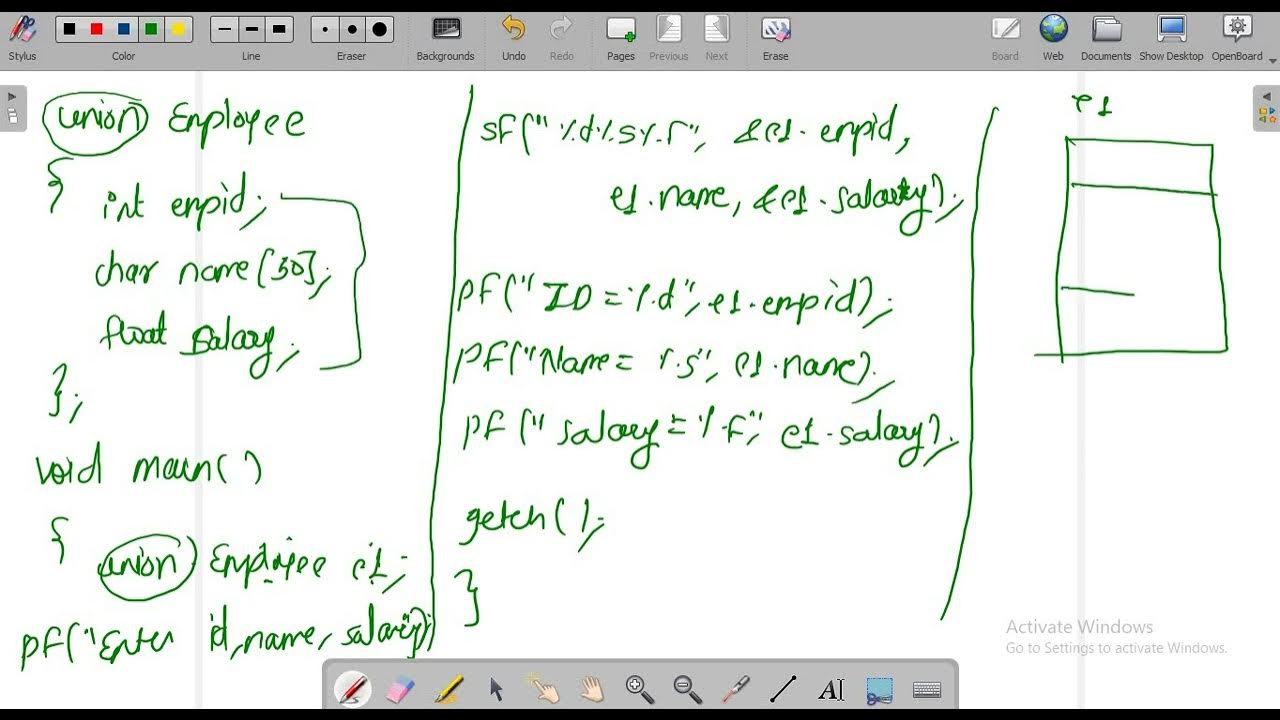 Stylus
Color
Line
Eraser
Backgrounds
Undo
Redo
Pages
Previous
Next
Erase
Board
Web
Documents
Show Desktop
OpenBoard
union Employee
{
int empid;
char name[30];
float salary;
};
void main()
{
union Employee e1;
pf("Enter id,name, salary");
sf("%d%s%f", &e1.empid,
e1.name, &e1.salary);
pf("ID=%d", e1.empid);
pf("Name= %s", e1.name);
pf("salary=%f", e1.salary);
getch();
}
e1
Activate Windows
Go to Settings to activate Windows.
A